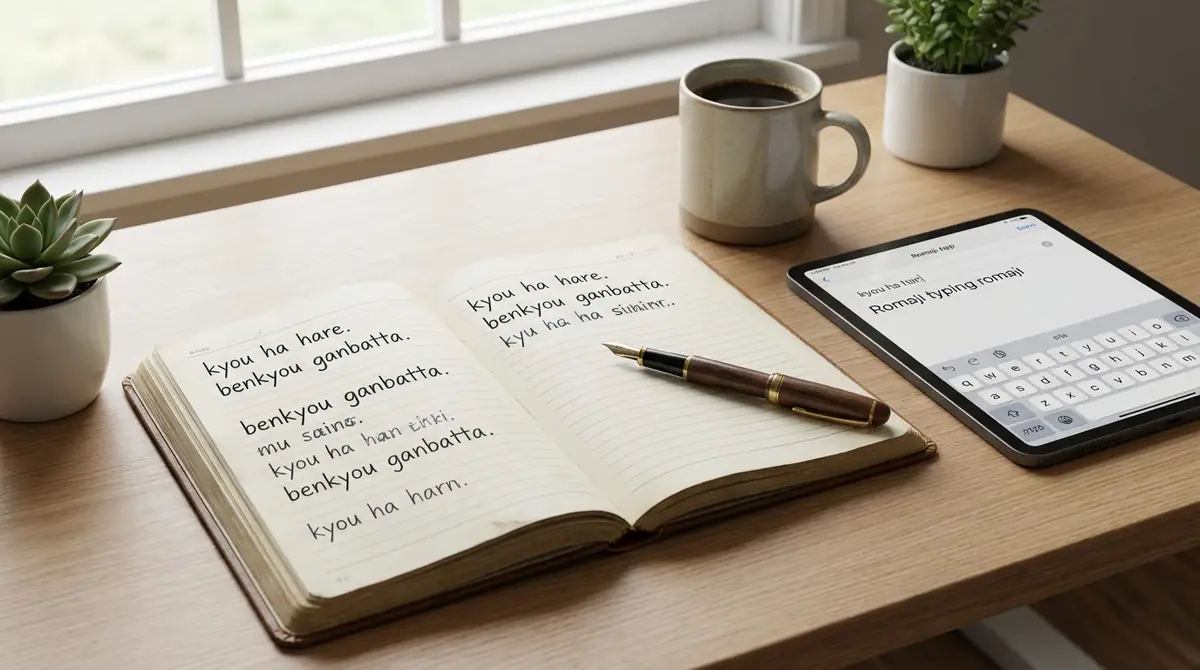 kyou ha hare.
benkyou ganbatta.
benkyou ganbatta.
mu
kyou ha han
benkyou ganbatta.
kyou ha harn.
kyou ha hare.
benkyou ganbatta.
kyu ha ha
Romaji App
kyou ha hari
Romaji typing romaji
q w e r t y u i o
a s d f g h j k l
z x c v b n m